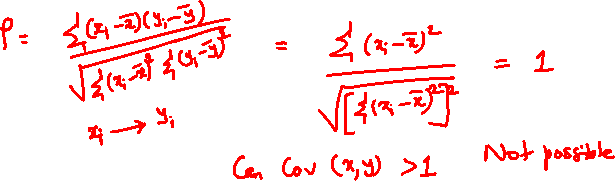 ρ = Σ(xᵢ-x̄)(yᵢ-ȳ) / √(Σ(xᵢ-x̄)² Σ(yᵢ-ȳ)²) = Σ(xᵢ-x̄)² / √([Σ(xᵢ-x̄)²]²) = 1
xᵢ → yᵢ
Can Cov (x,y) >1 Not possible